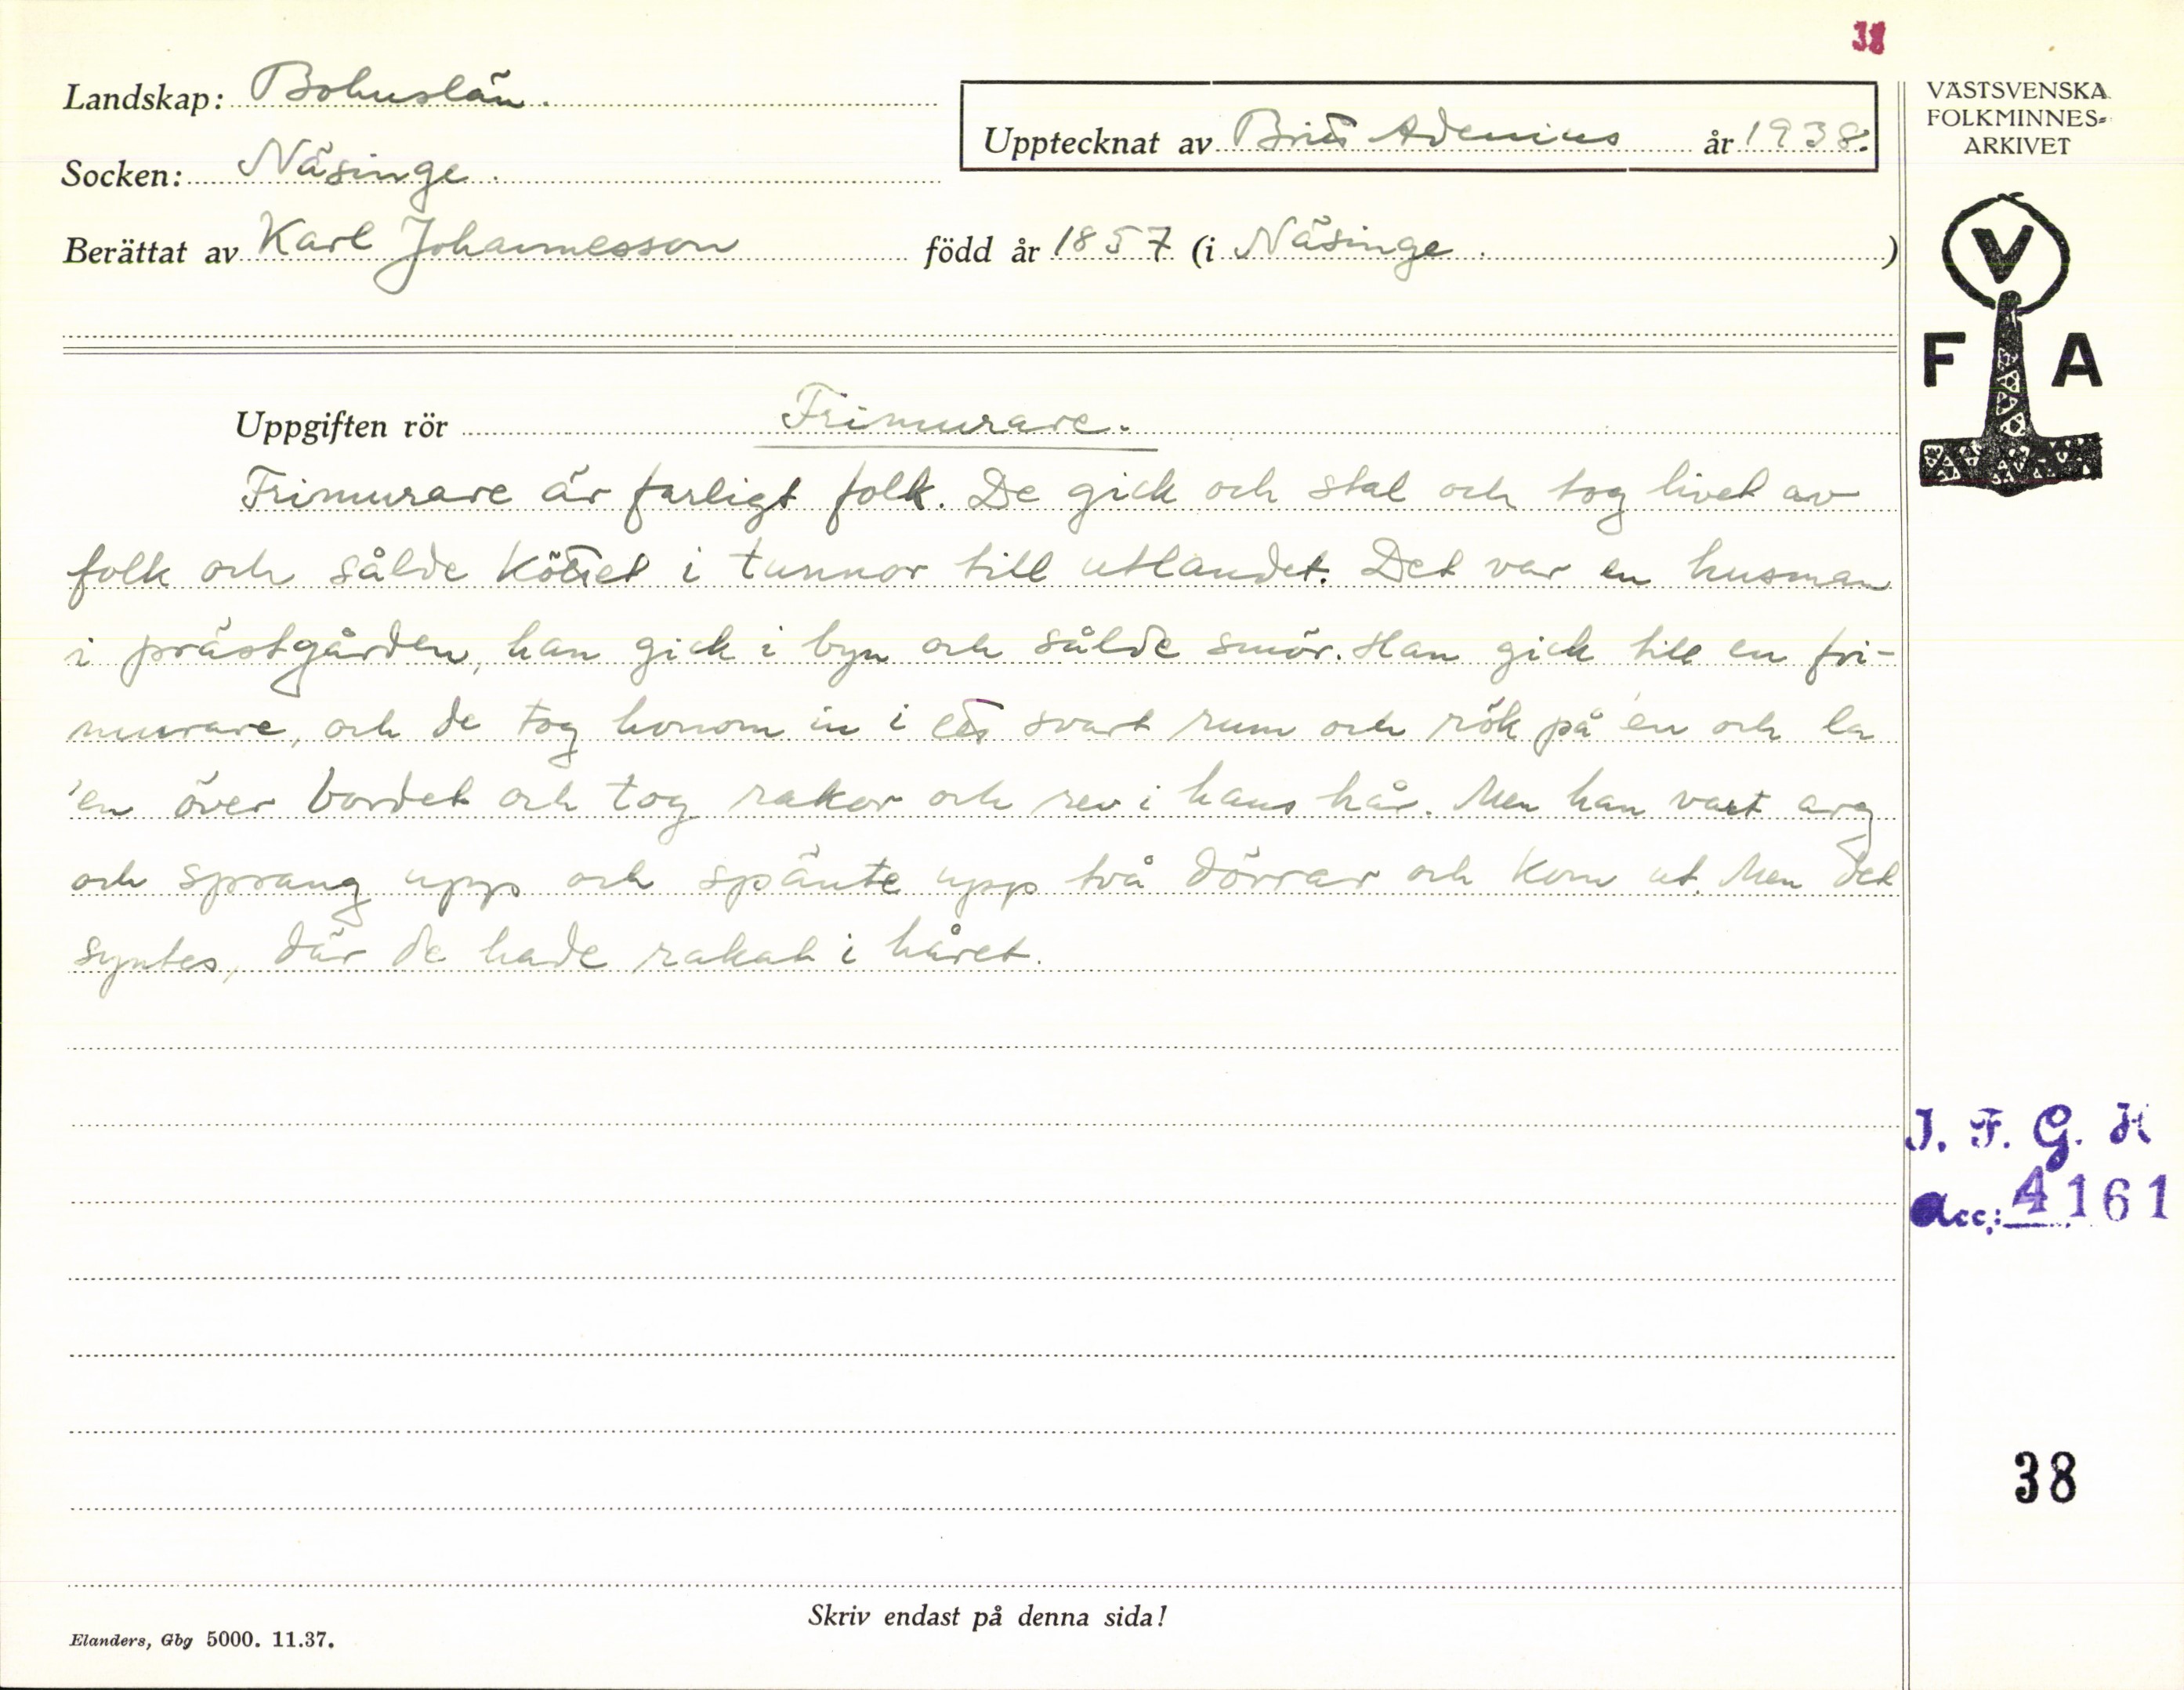 38
Landskap: Bohuslän.
Socken: Näsinge.
Upptecknat av Britt Adenius år 1938.
Berättat av Karl Johannesson född år 1857 (i Näsinge.)
VÄSTSVENSKA
FOLKMINNES-
ARKIVET
V
F A
Uppgiften rör Frimurare.
Frimurare är farligt folk. De gick och stal och tog livet av
folk och sålde köttet i tunnor till utlandet. Det var en husman
i prästgården, han gick i byn och sålde smör. Han gick till en fri-
murare, och de tog honom in i ett svart rum och rök på 'en och la
'en över bordet och tog rakor och rev i hans hår. Men han vart arg
och sprang upp och spänte upp två dörrar och kom ut. Men det
syntes, där de hade rakat i håret.
I. F. G. H
Acc: 4161
38
Skriv endast på denna sida!
Elanders, Gbg 5000. 11.37.